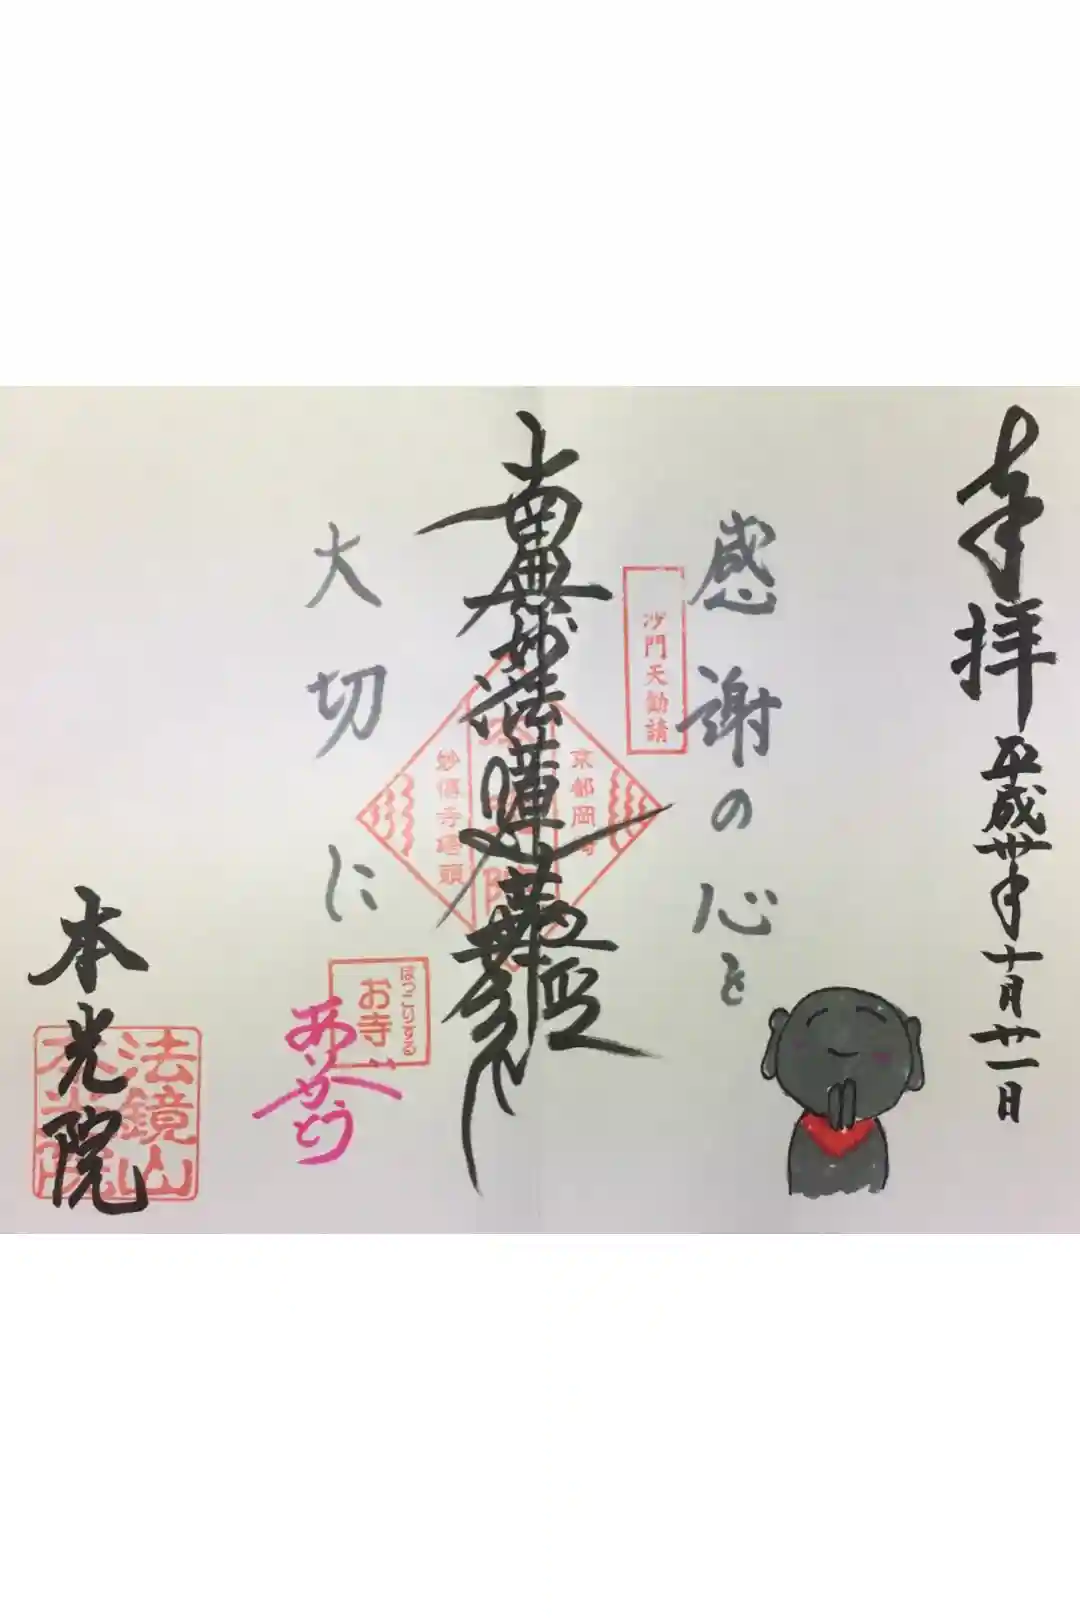 奉拝
平成丗年十月廿一日
感謝の心を
沙門天勧請
京都岡崎
南無妙法蓮華経
妙傳寺塔頭
大切に
ほっこりする
お寺
ありがとう
法鏡山
本光院
本光院